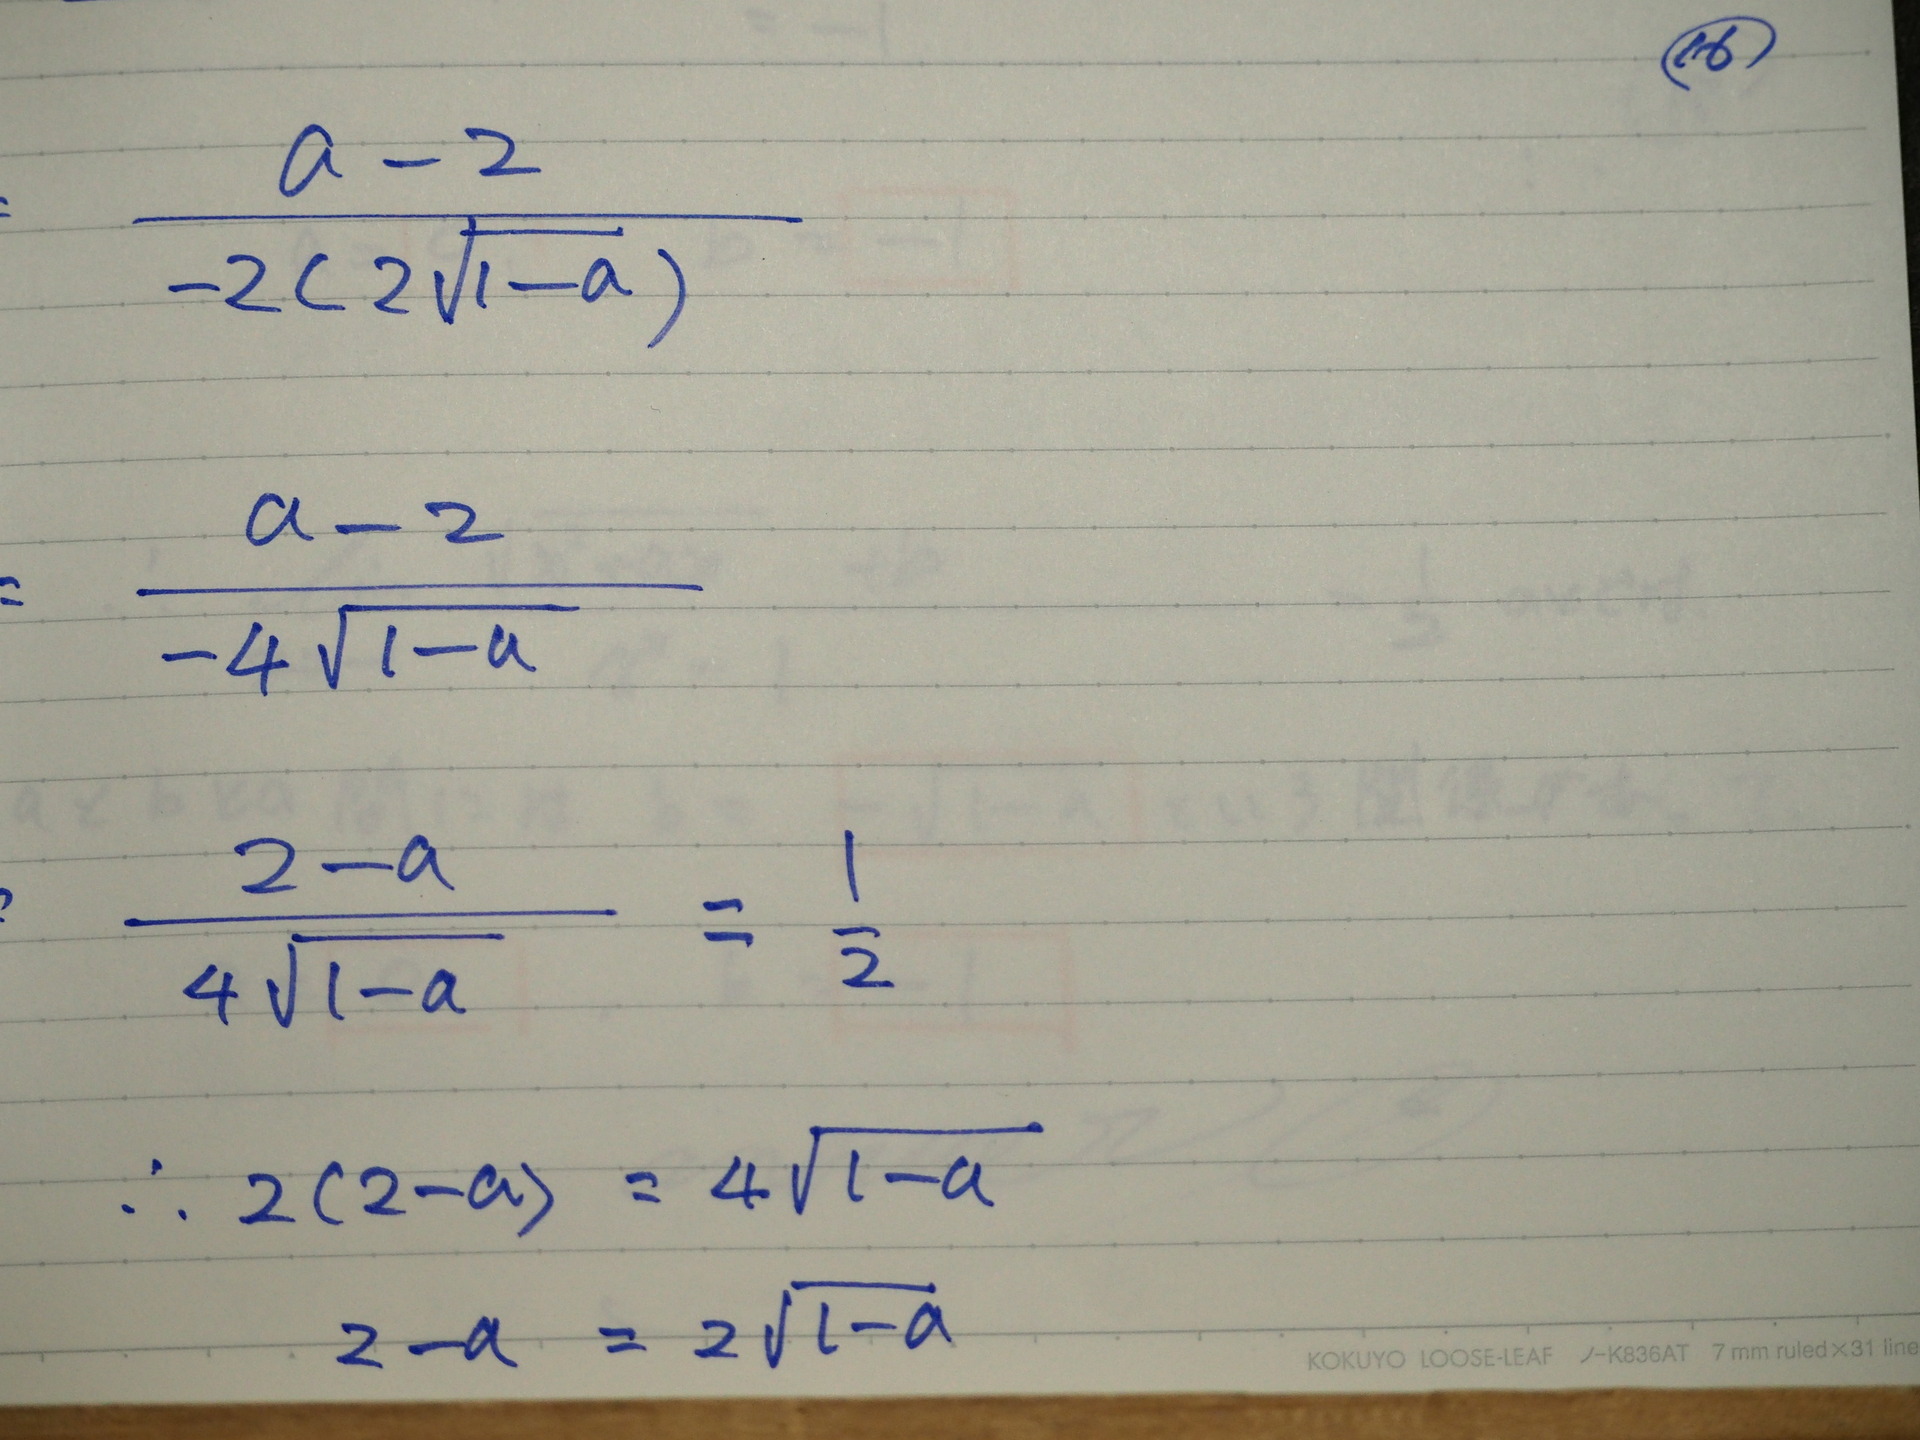 (16)
= \frac{a-2}{-2(2\sqrt{1-a})}
= \frac{a-2}{-4\sqrt{1-a}}
= \frac{2-a}{4\sqrt{1-a}} = \frac{1}{2}
∴ 2(2-a) = 4\sqrt{1-a}
2-a = 2\sqrt{1-a}
KOKUYO LOOSE-LEAF ノ-K836AT 7 mm ruled×31 line